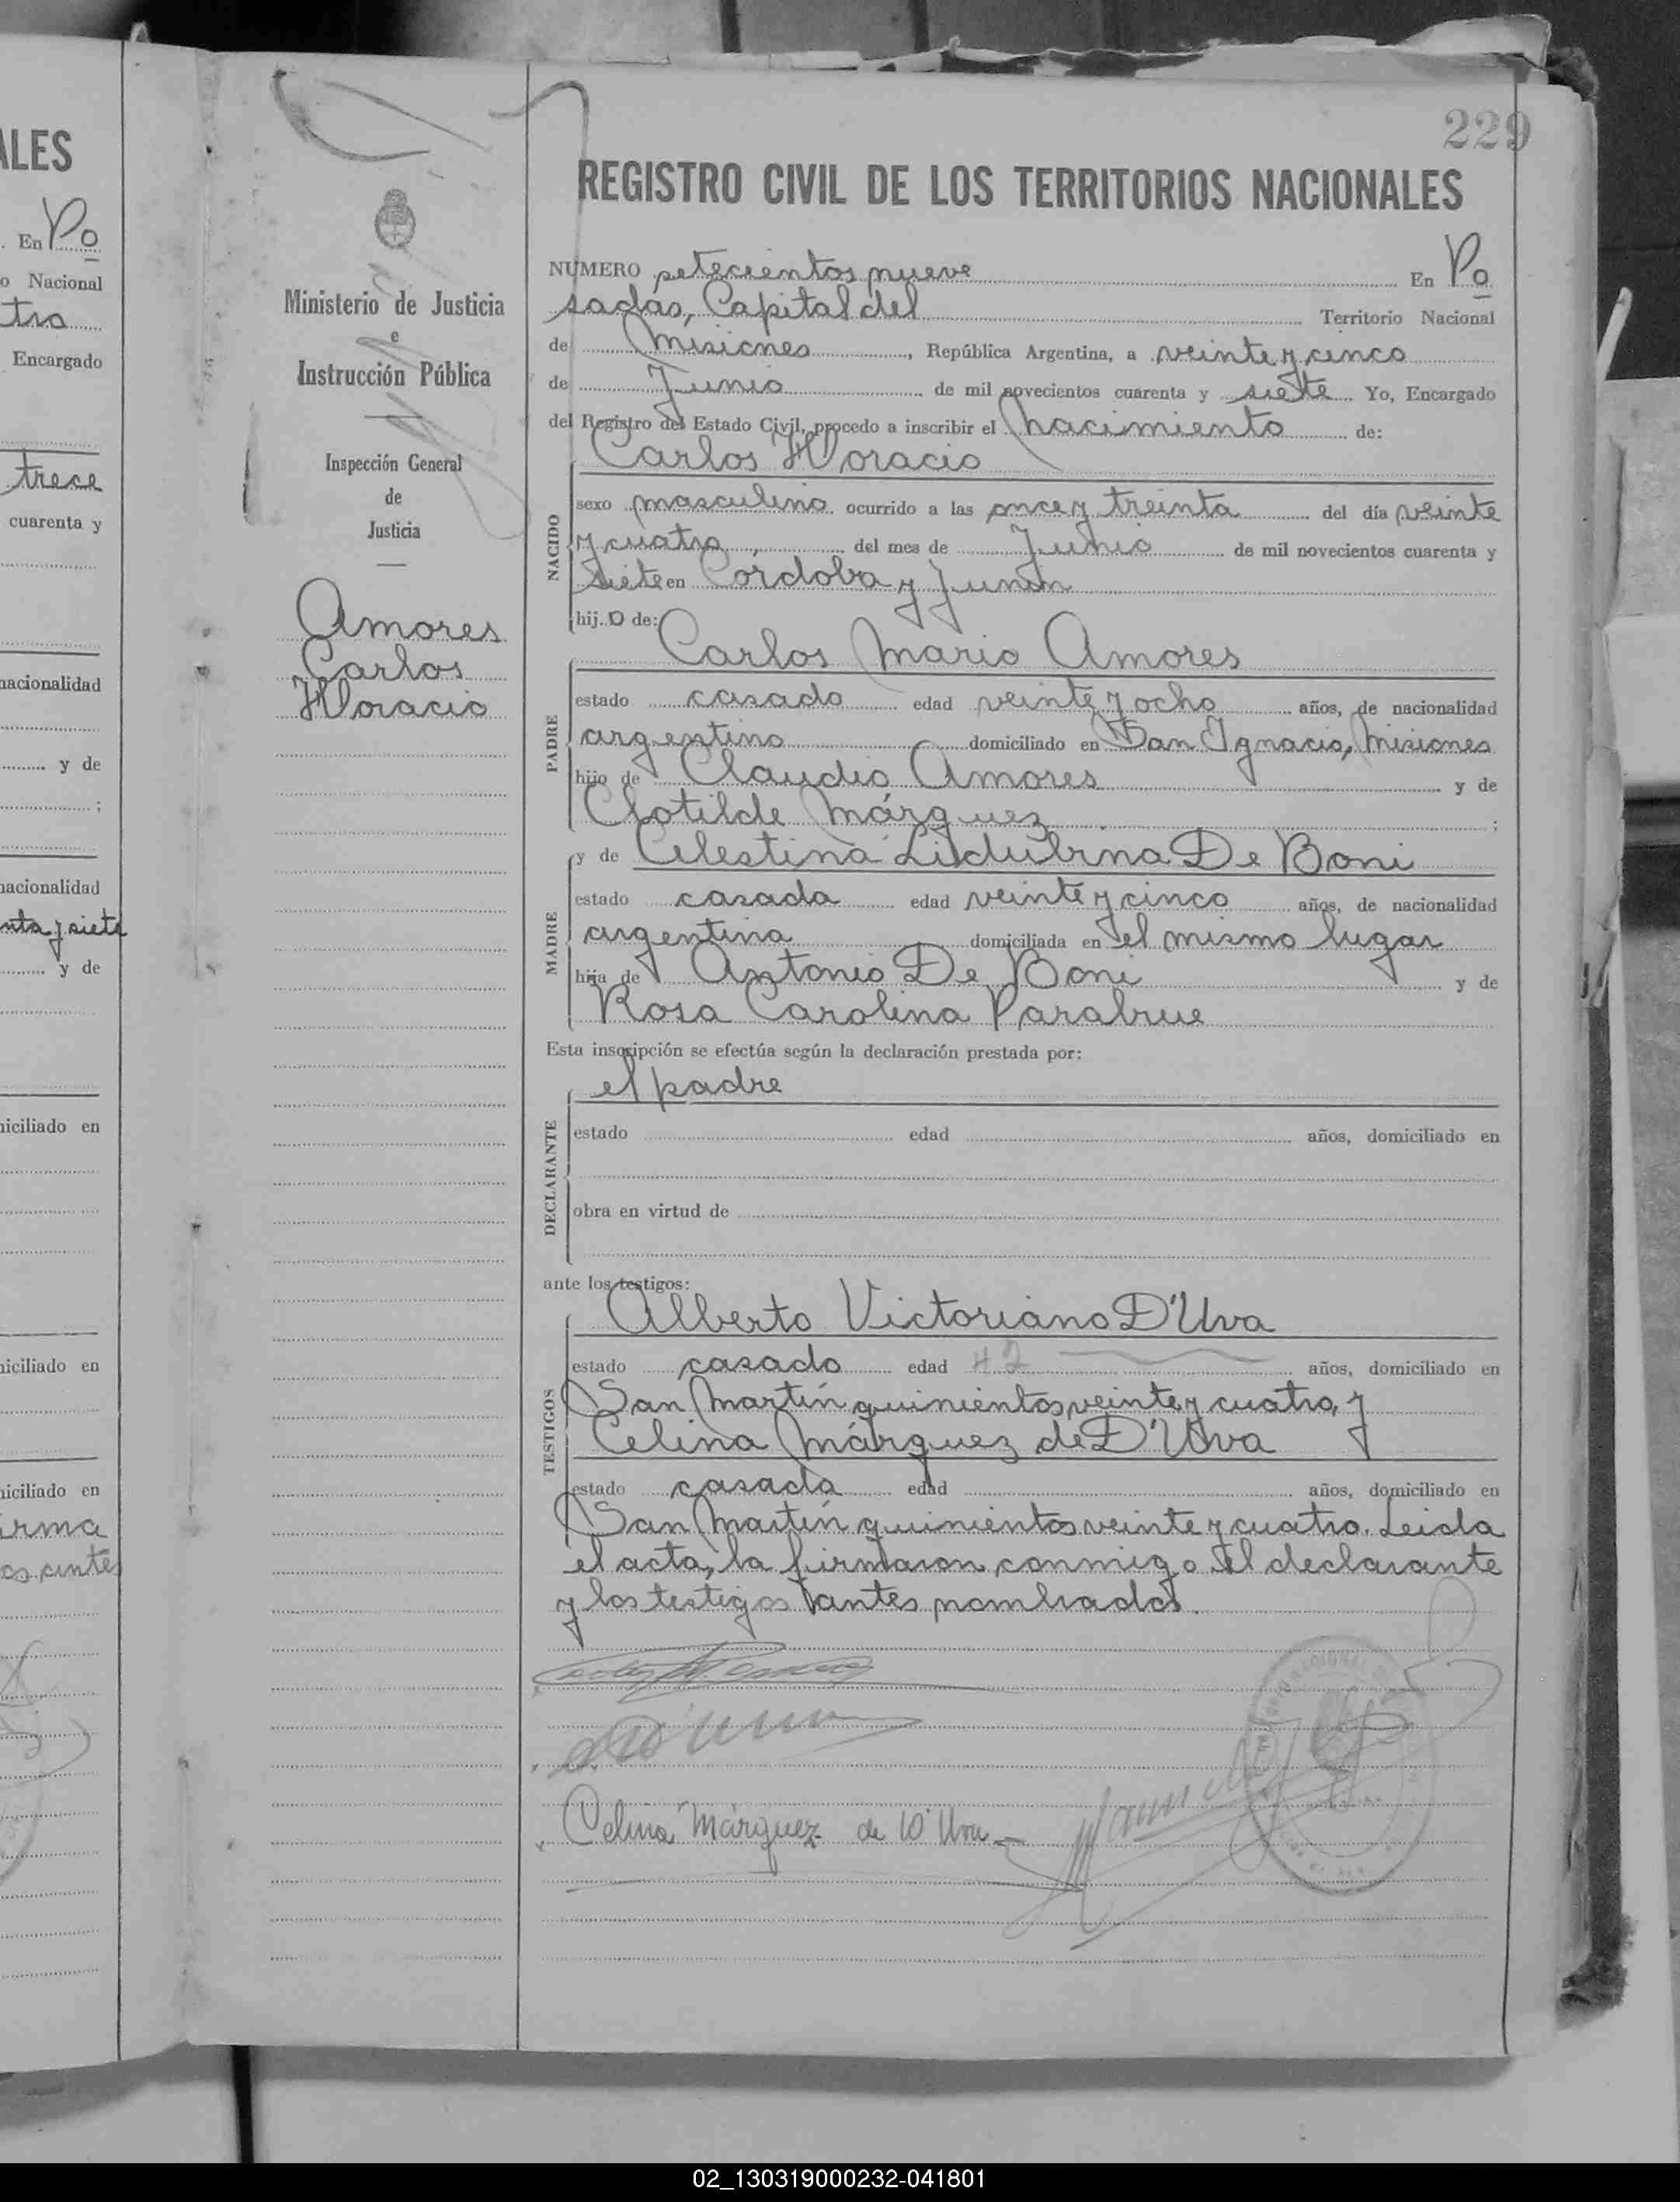 ALES
En Po
o Nacional
tro
Encargado
trece
cuarenta y
nacionalidad
y de
;
nacionalidad
nta y siete
y de
niciliado en
niciliado en
niciliado en
irma
os antes
Ministerio de Justicia
e
Instrucción Pública
Inspección General
de
Justicia
Amores
Carlos
Horacio
229
REGISTRO CIVIL DE LOS TERRITORIOS NACIONALES
NUMERO setecientos nueve En Po
sadas, Capital del Territorio Nacional
de Misiones, República Argentina, a veinte y cinco
de Junio de mil novecientos cuarenta y siete Yo, Encargado
del Registro del Estado Civil, procedo a inscribir el nacimiento de:
Carlos Horacio
NACIDO
sexo masculino ocurrido a las once y treinta del día veinte
y cuatro del mes de Junio de mil novecientos cuarenta y
siete en Cordoba y Junin
hijo de:
Carlos Mario Amores
PADRE
estado casado edad veinte y ocho años, de nacionalidad
argentino domiciliado en San Ignacio, Misiones
hijo de Claudio Amores y de
Clotilde Márquez ;
y de Celestina Lidubina De Boni
MADRE
estado casada edad veinte y cinco años, de nacionalidad
argentina domiciliada en el mismo lugar
hija de Antonio De Boni y de
Rosa Carolina Parabue
Esta inscripción se efectúa según la declaración prestada por:
el padre
DECLARANTE
estado edad años, domiciliado en
obra en virtud de
ante los testigos:
Alberto Victoriano D'Uva
TESTIGOS
estado casado edad 42 años, domiciliado en
San Martín quinientos veinte y cuatro, y
Celina Márquez de D'Uva
estado casada edad años, domiciliado en
San Martín quinientos veinte y cuatro. Leida
el acta, la firmaron conmigo el declarante
y los testigos antes nombrados.
Celina Márquez de D'Uva
02_130319000232-041801